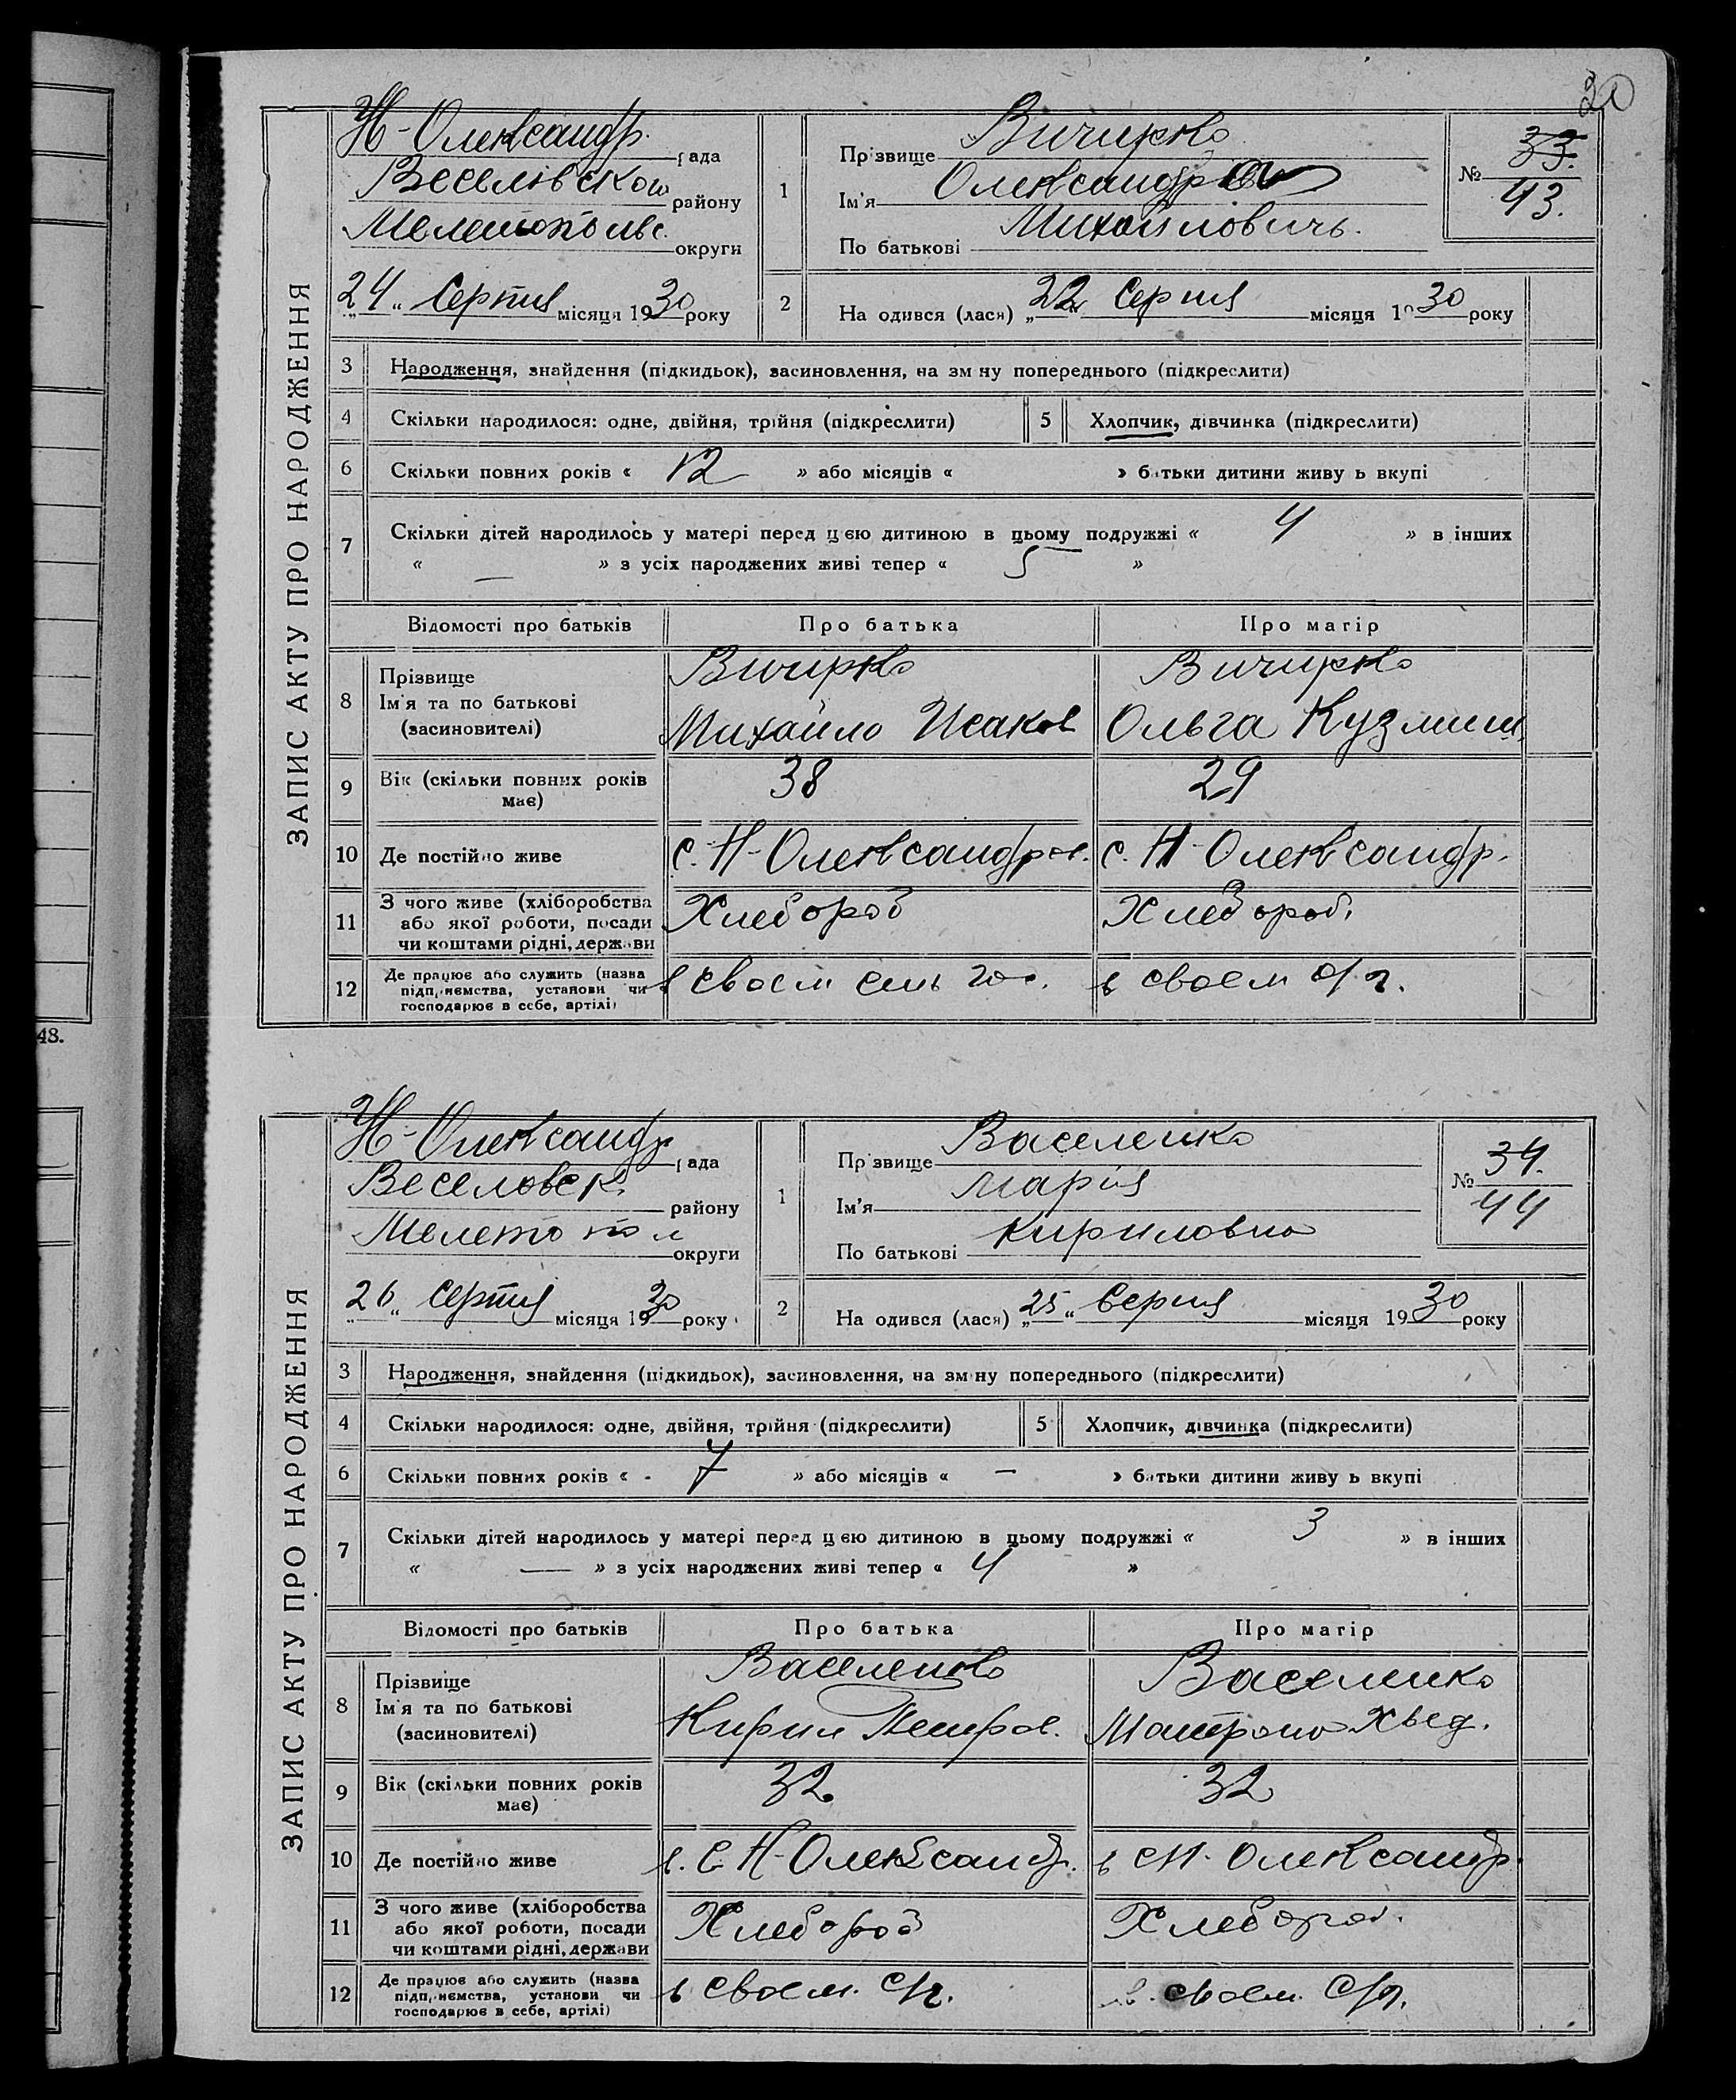 20
ЗАПИС АКТУ ПРО НАРОДЖЕННЯ
Н-Олександр. рада
Веселівског району
Мелетопольс. округи
24 " Серпня місяця 1930 року
1
Прізвище Вичирко
Ім'я Олександр
По батькові Михайловичь.
№ 33.
43.
2
На одився (лася) „22" Серпня місяця 1930 року
3 Народження, знайдення (підкидьок), засиновлення, на зм ну попереднього (підкреслити)
4 Скільки народилося: одне, двійня, трійня (підкреслити) 5 Хлопчик, дівчинка (підкреслити)
6 Скільки повних років « 12 » або місяців « » батьки дитини живу ь вкупі
7 Скільки дітей народилось у матері перед цією дитиною в цьому подружжі « 4 » в інших
« — » з усіх народжених живі тепер « 5 »
Відомості про батьків Про батька Про матір
8 Прізвище
Ім'я та по батькові
(засиновителі)
Вичирко
Михайло Исаков
Вичирко
Ольга Кузмин.
9 Вік (скільки повних років
має)
38 29
10 Де постійно живе с. Н-Олександров. с. Н-Олександр.
11 З чого живе (хліборобства
або якої роботи, посади
чи коштами рідні, держави
Хлебороб Хлебороб.
12 Де працює або служить (назва
підприємства, установи чи
господарює в себе, артілі)
в своем сель гос. в своем с/г.
48.
ЗАПИС АКТУ ПРО НАРОДЖЕННЯ
Н-Олександр рада
Веселовск. району
Мелетопол округи
26 " Серпня місяця 1930 року
1
Прізвище Васеленко
Ім'я Марія
По батькові Кириловна
№ 34.
44
2
На одився (лася) „25" Серпня місяця 1930 року
3 Народження, знайдення (підкидьок), засиновлення, на зм ну попереднього (підкреслити)
4 Скільки народилося: одне, двійня, трійня (підкреслити) 5 Хлопчик, дівчинка (підкреслити)
6 Скільки повних років « - 7 » або місяців « — » батьки дитини живу ь вкупі
7 Скільки дітей народилось у матері перед цією дитиною в цьому подружжі « 3 » в інших
« — » з усіх народжених живі тепер « 4 »
Відомості про батьків Про батька Про матір
8 Прізвище
Ім'я та по батькові
(засиновителі)
Васеленко
Кирил Петров.
Васеленко
Матрона Хвед.
9 Вік (скільки повних років
має)
32 32
10 Де постійно живе в. с Н-Олександр. в с Н-Олександр.
11 З чого живе (хліборобства
або якої роботи, посади
чи коштами рідні, держави
Хлебороб Хлебороб.
12 Де працює або служить (назва
підприємства, установи чи
господарює в себе, артілі)
в своем. с/г. в. своем. с/г.